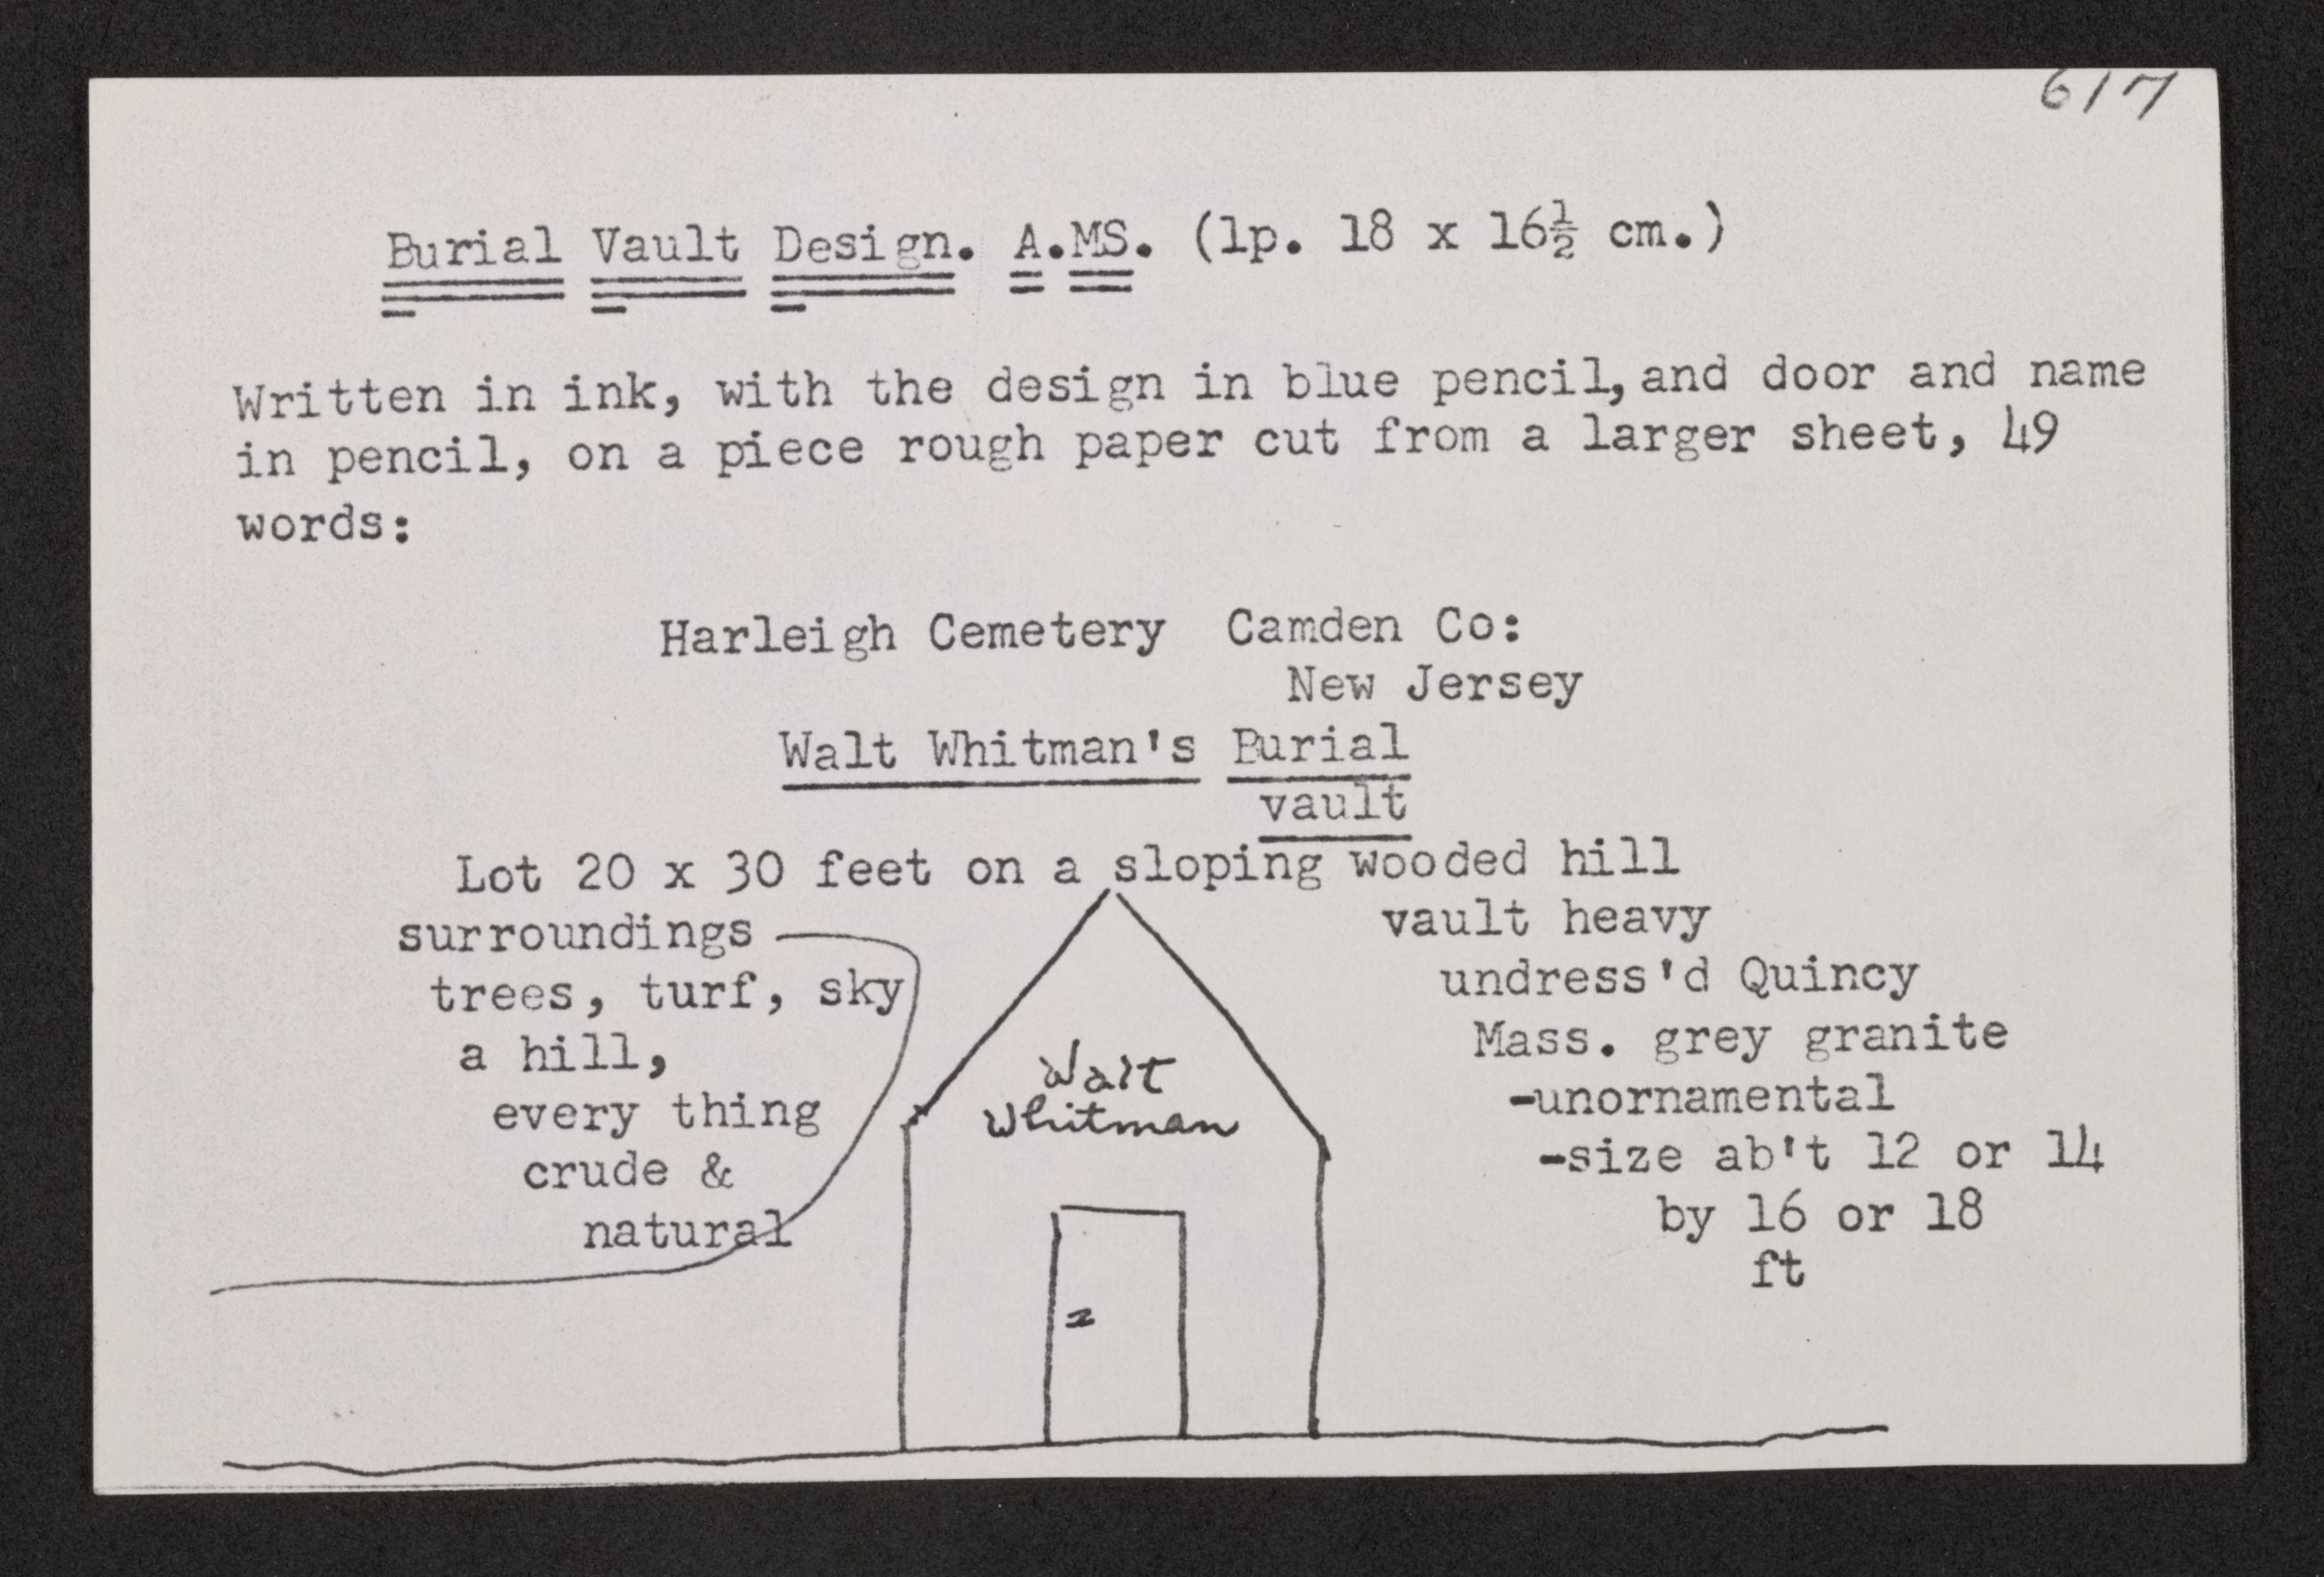 617
Burial Vault Design. A.MS. (1p. 18 x 16½ cm.)
Written in ink, with the design in blue pencil, and door and name
in pencil, on a piece rough paper cut from a larger sheet, 49
words:
Harleigh Cemetery Camden Co:
New Jersey
Walt Whitman's Burial
vault
Lot 20 x 30 feet on a sloping wooded hill
surroundings
trees, turf, sky
a hill,
every thing
crude &
natural
vault heavy
undress'd Quincy
Mass. grey granite
-unornamental
-size ab't 12 or 14
by 16 or 18
ft
Walt
Whitman